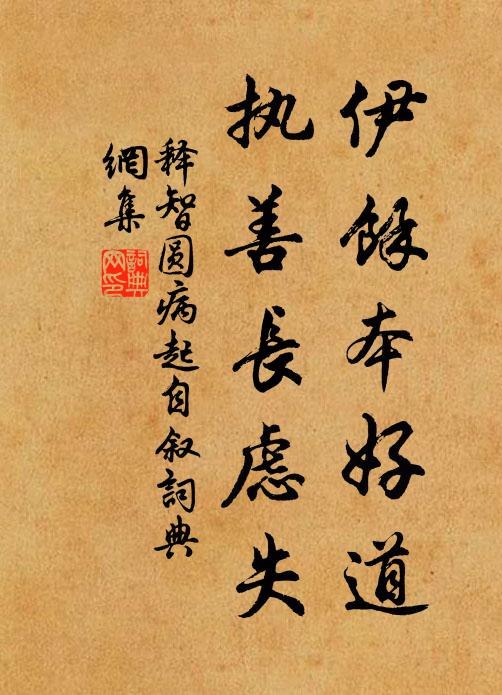 伊餘本好道
执善長慮失
释智圆病起自叙詞典
網集
詞典
网印